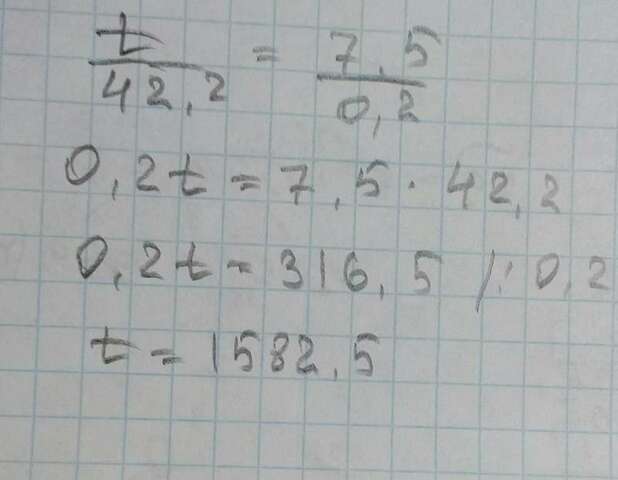 t/42,2 = 7,5/0,2
0,2t = 7,5 · 42,2
0,2t = 316,5 /: 0,2
t = 1582,5